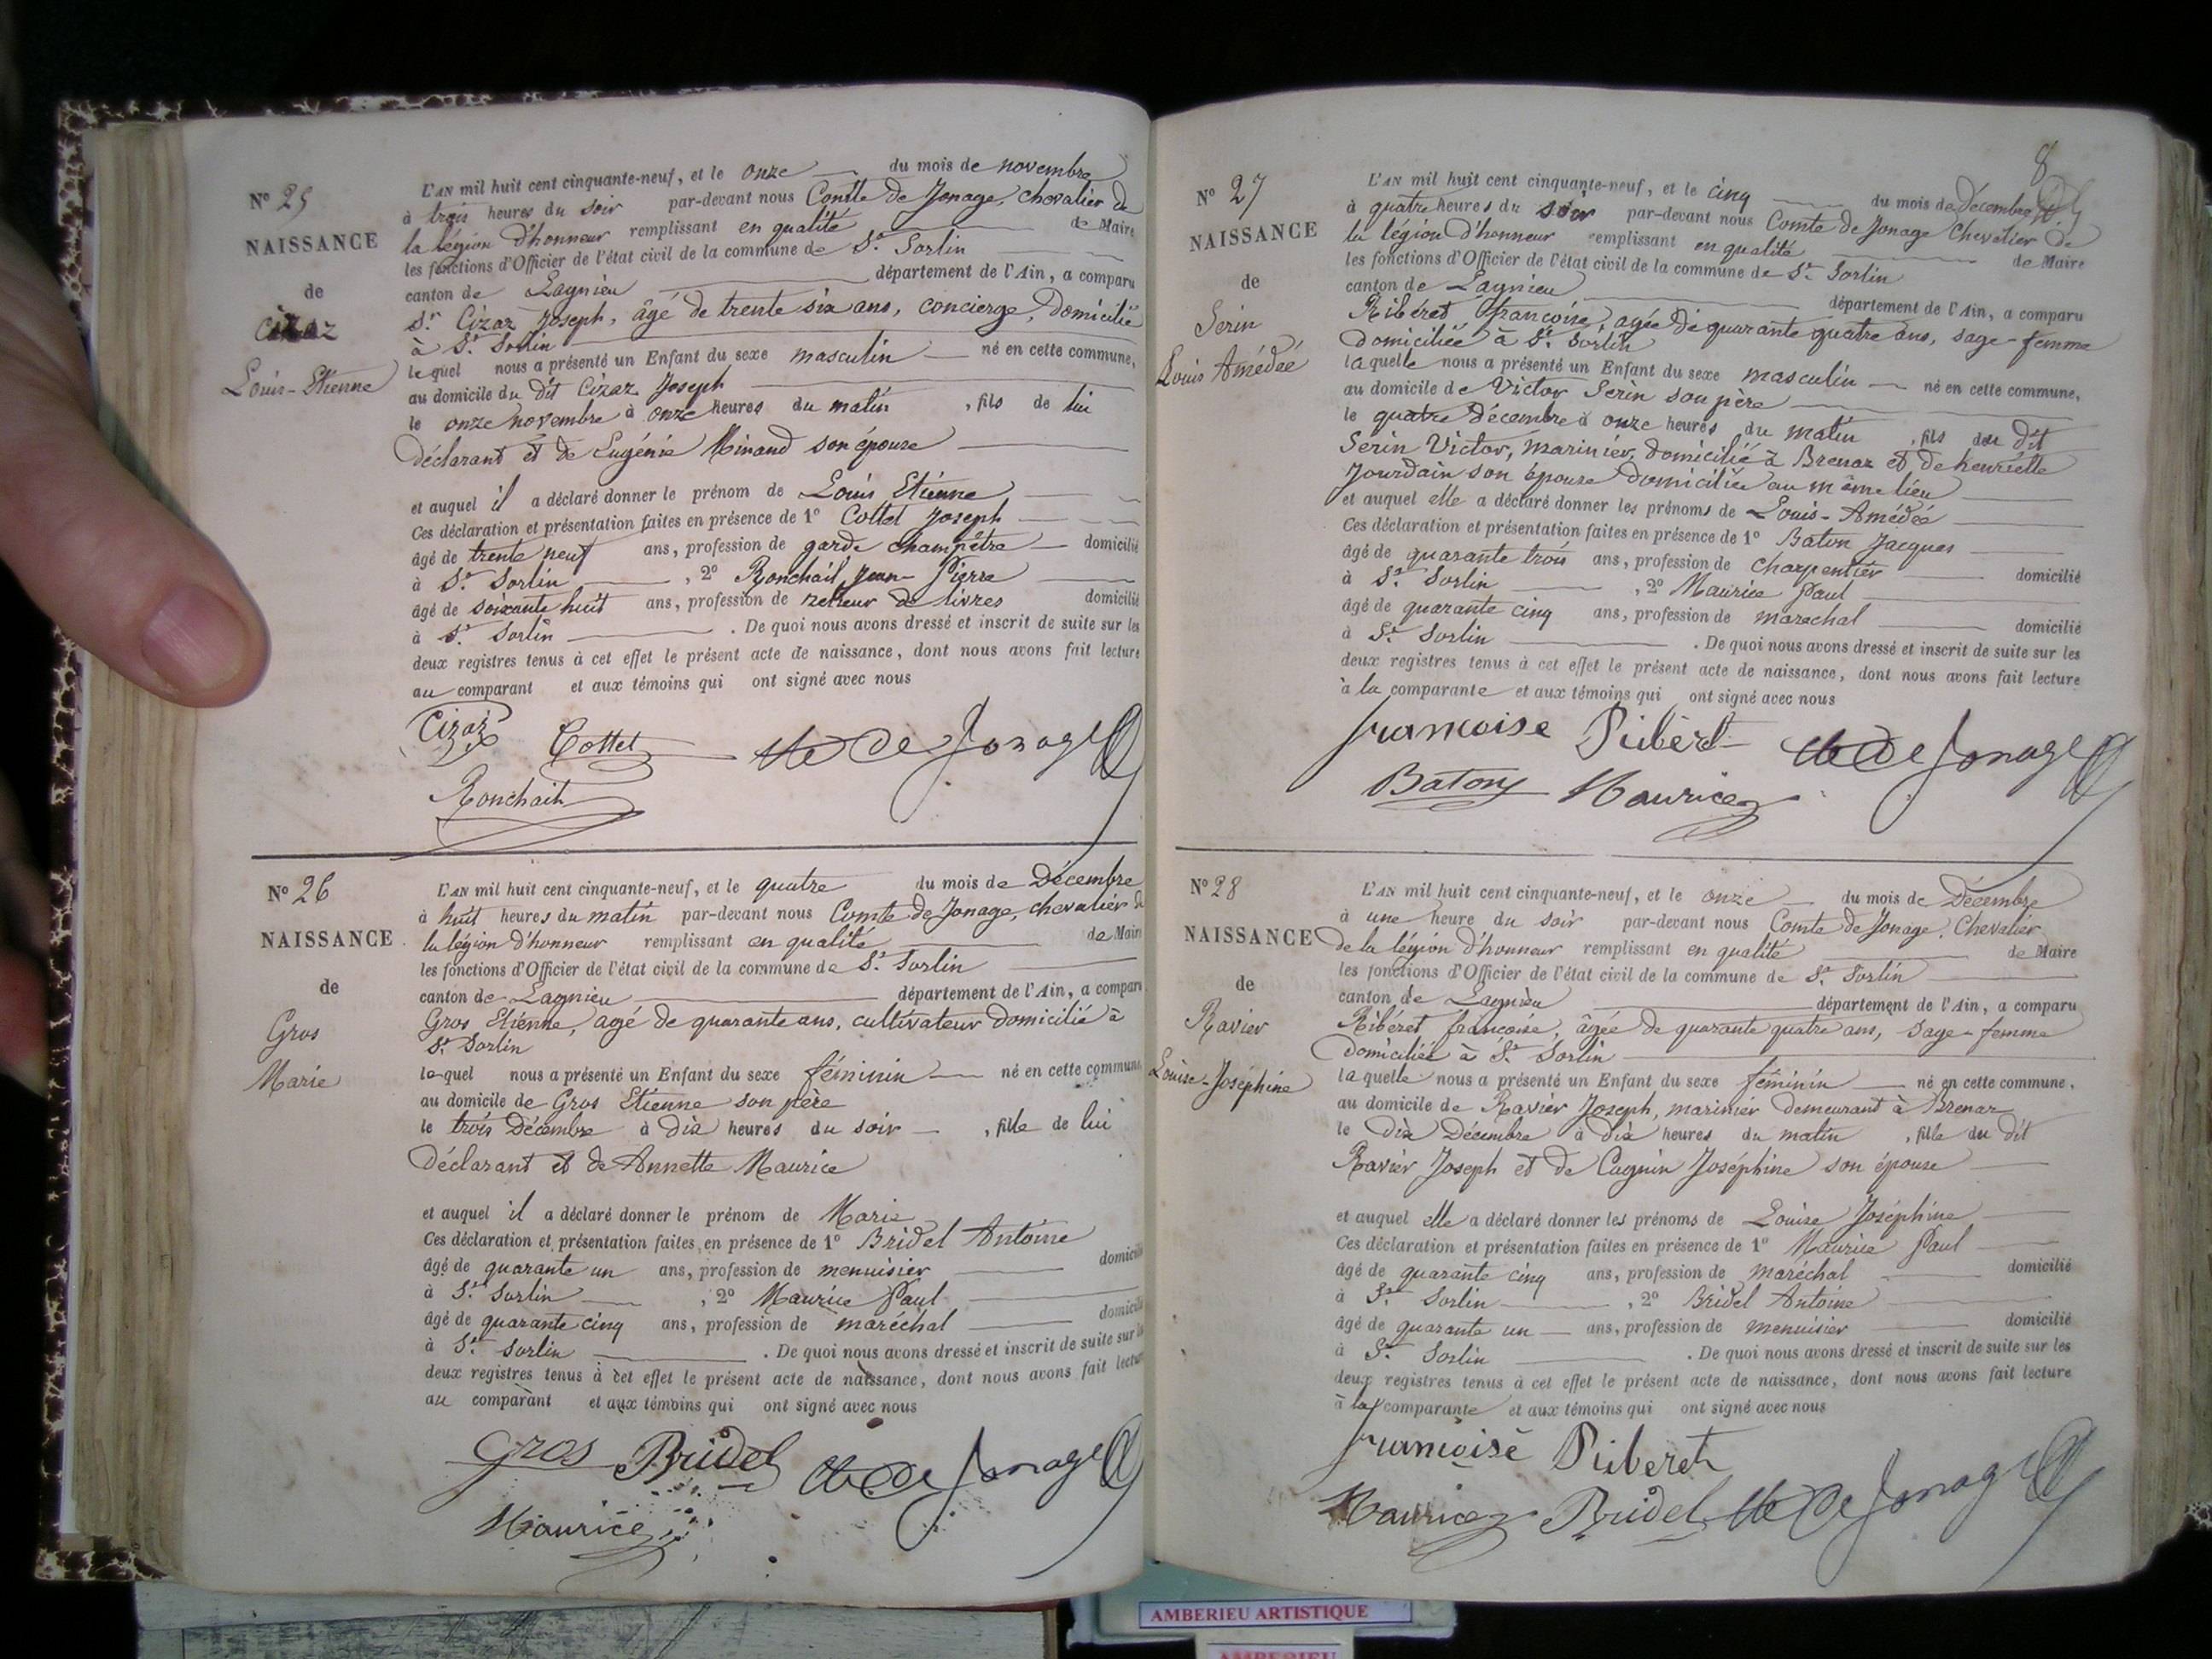 N° 25
NAISSANCE
de
Cizaz
Louis-Etienne
L'AN mil huit cent cinquante-neuf, et le onze du mois de novembre
à trois heures du soir par-devant nous Comte de Jonage, chevalier de
la légion d'honneur remplissant en qualité de Maire
les fonctions d'Officier de l'état civil de la commune de St. Sorlin
canton de Lagnieu département de l'Ain, a comparu
Sr. Cizaz Joseph, âgé de trente six ans, concierge, domicilié
à St. Sorlin
lequel nous a présenté un Enfant du sexe masculin né en cette commune,
au domicile du dit Cizaz Joseph
le onze novembre à onze heures du matin, fils de lui
déclarant et de Eugénie Minand son épouse
et auquel il a déclaré donner le prénom de Louis Etienne
Ces déclaration et présentation faites en présence de 1° Cottet Joseph
âgé de trente neuf ans, profession de garde champêtre domicilié
à St. Sorlin, 2° Ronchail Jean-Pierre
âgé de soixante huit ans, profession de relieur de livres domicilié
à St. Sorlin. De quoi nous avons dressé et inscrit de suite sur les
deux registres tenus à cet effet le présent acte de naissance, dont nous avons fait lecture
au comparant et aux témoins qui ont signé avec nous
Cizaz Cottet de Jonage
Ronchail
N° 26
NAISSANCE
de
Gros
Marie
L'AN mil huit cent cinquante-neuf, et le quatre du mois de Décembre
à huit heures du matin par-devant nous Comte de Jonage, chevalier de
la légion d'honneur remplissant en qualité de Maire
les fonctions d'Officier de l'état civil de la commune de St. Sorlin
canton de Lagnieu département de l'Ain, a comparu
Gros Etienne, agé de quarante ans, cultivateur domicilié à
St. Sorlin
lequel nous a présenté un Enfant du sexe féminin né en cette commune
au domicile de Gros Etienne son père
le trois Décembre à dix heures du soir, fille de lui
Déclarant et de Annette Maurice
et auquel il a déclaré donner le prénom de Marie
Ces déclaration et présentation faites en présence de 1° Bridel Antoine
âgé de quarante un ans, profession de menuisier domicilié
à St. Sorlin, 2° Maurice Paul
âgé de quarante cinq ans, profession de maréchal domicilié
à St. Sorlin. De quoi nous avons dressé et inscrit de suite sur les
deux registres tenus à cet effet le présent acte de naissance, dont nous avons fait lecture
au comparant et aux témoins qui ont signé avec nous
Gros Bridel de Jonage
Maurice
8
N° 27
NAISSANCE
de
Serin
Louis Amédée
L'AN mil huit cent cinquante-neuf, et le cinq du mois de Décembre
à quatre heures du soir par-devant nous Comte de Jonage Chevalier de
la légion d'honneur remplissant en qualité de Maire
les fonctions d'Officier de l'état civil de la commune de St. Sorlin
canton de Lagnieu département de l'Ain, a comparu
Ribéret Françoise agée de quarante quatre ans, sage-femme
domiciliée à St. Sorlin
laquelle nous a présenté un Enfant du sexe masculin né en cette commune,
au domicile de Victor Serin son père
le quatre décembre à onze heures du matin, fils du dit
Serin Victor, marinier, domicilié à Brenaz et de henriette
Jourdain son épouse domiciliée au même lieu
et auquel elle a déclaré donner les prénoms de Louis-Amédée
Ces déclaration et présentation faites en présence de 1° Baton Jacques
âgé de quarante trois ans, profession de Charpentier domicilié
à St. Sorlin, 2° Maurice Paul
âgé de quarante cinq ans, profession de marechal domicilié
à St. Sorlin. De quoi nous avons dressé et inscrit de suite sur les
deux registres tenus à cet effet le présent acte de naissance, dont nous avons fait lecture
à la comparante et aux témoins qui ont signé avec nous
francoise Ribèret de Jonage
Baton Maurice
N° 28
NAISSANCE
de
Ravier
Louise-Joséphine
L'AN mil huit cent cinquante-neuf, et le onze du mois de Décembre
à une heure du soir par-devant nous Comte de Jonage, Chevalier
de la légion d'honneur remplissant en qualité de Maire
les fonctions d'Officier de l'état civil de la commune de St. Sorlin
canton de Lagnieu département de l'Ain, a comparu
Ribéret françoise, âgée de quarante quatre ans, sage-femme
domiciliée à St. Sorlin
laquelle nous a présenté un Enfant du sexe féminin né en cette commune,
au domicile de Ravier Joseph, marinier demeurant à Brenaz
le dix Décembre à dix heures du matin, fille du dit
Ravier Joseph et de Cagnin Joséphine son épouse
et auquel elle a déclaré donner les prénoms de Louise Joséphine
Ces déclaration et présentation faites en présence de 1° Maurice Paul
âgé de quarante cinq ans, profession de maréchal domicilié
à St. Sorlin, 2° Bridel Antoine
âgé de quarante un ans, profession de menuisier domicilié
à St. Sorlin. De quoi nous avons dressé et inscrit de suite sur les
deux registres tenus à cet effet le présent acte de naissance, dont nous avons fait lecture
à la comparante et aux témoins qui ont signé avec nous
francoise Riberet
Maurice Bridel de Jonage
AMBERIEU ARTISTIQUE
AMBERIEU